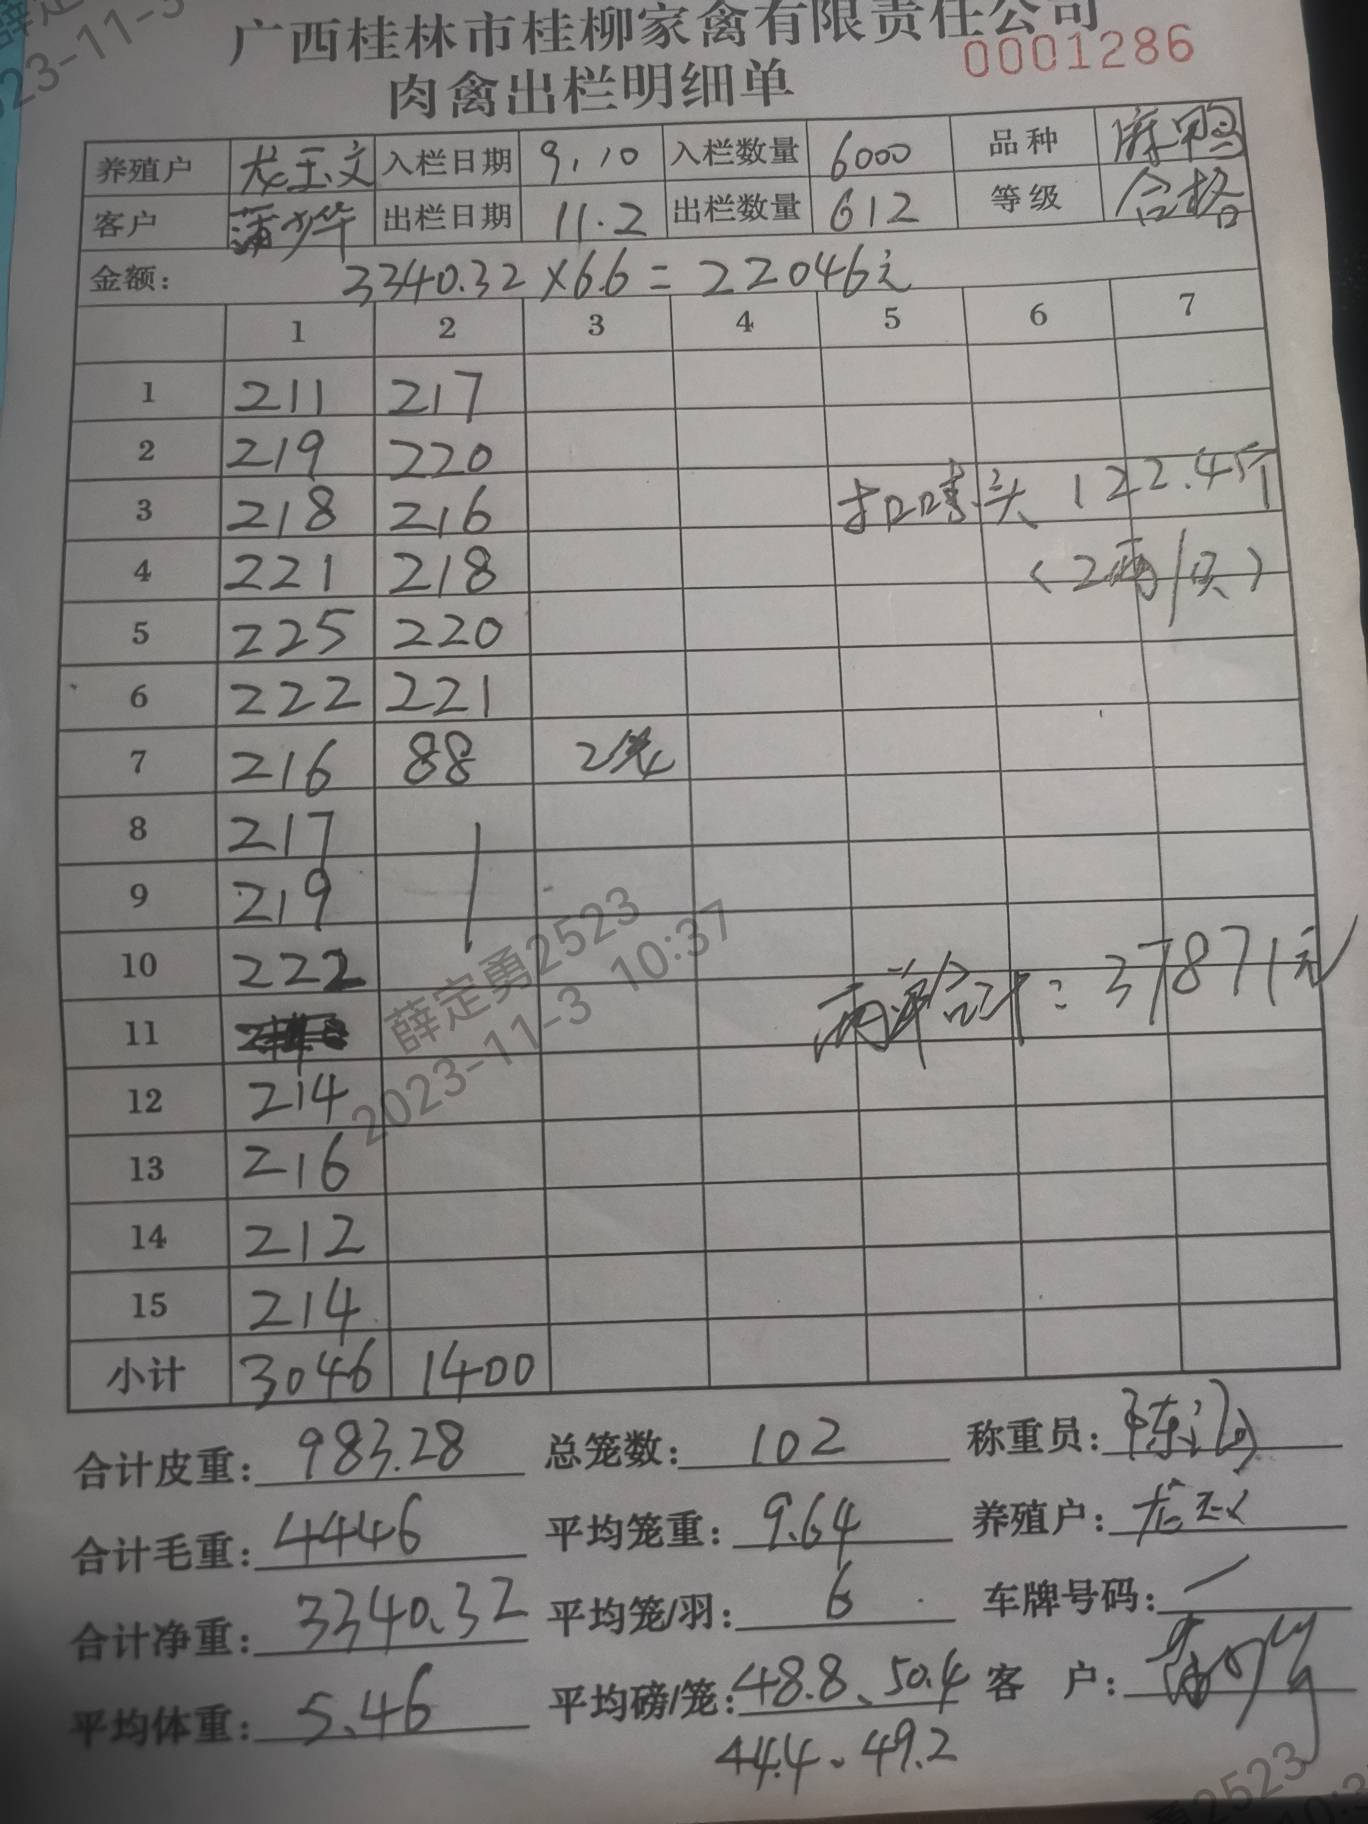 广西桂林市桂柳家禽有限责任公司
0001286
肉禽出栏明细单
养殖户 龙玉文 入栏日期 9.10 入栏数量 6000 品种 麻鸭
客户 蒲少华 出栏日期 11.2 出栏数量 612 等级 合格
金额: 3340.32×6.6=22046元
1 2 3 4 5 6 7
1 211 217
2 219 220
3 218 216 扣嗉头 122.4斤
4 221 218 (2两/只)
5 225 220
6 222 221
7 216 88 2笼
8 217
9 219
10 222 两单合计: 37871元
11
12 214
13 216
14 212
15 214
小计 3046 1400
合计皮重: 983.28 总笼数: 102 称重员:
合计毛重: 4446 平均笼重: 9.64 养殖户: 龙玉文
合计净重: 3340.32 平均笼/羽: 6 车牌号码: 一
平均体重: 5.46 平均磅/笼: 48.8、50.4 客 户:
44.4、49.2
薛定勇2523
2023-11-3 10:37